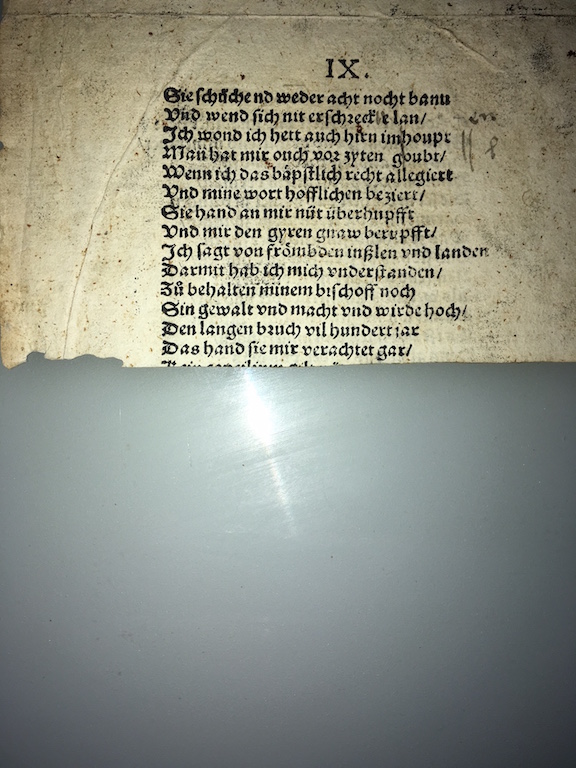 IX.
Sie schüchend weder acht nocht bann
Vnd wend sich nit erschrecke lan/
Ich wond ich hett auch hirn im houpt
Man hat mir ouch vor zyten goubt/
Wenn ich das bäpstlich recht allegiert
Vnd mine wort hofflichen beziert/
Sie hand an mir nüt überhupfft
Vnd mir den gyren gnaw berupfft/
Ich sagt von frömbden inßlen vnd landen
Darmit hab ich mich vnderstanden/
Zů behalten minem bischoff noch
Sin gewalt vnd macht vnd wirde hoch/
Den langen bruch vil hundert jar
Das hand sie mir verachtet gar/